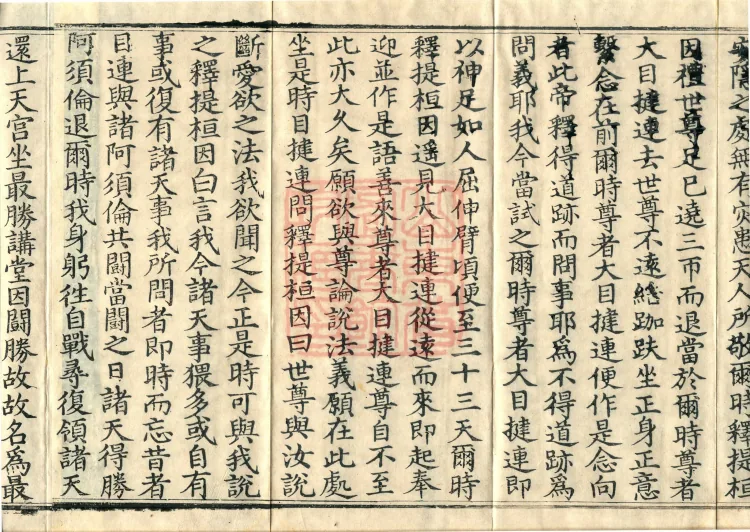 隱之處無有灾患天人所敬爾時釋提桓
因禮世尊足已遶三帀而退當於爾時尊者
大目揵連去世尊不遠結跏趺坐正身正意
繫念在前爾時尊者大目揵連便作是念向
者此帝釋得道跡而問事耶爲不得道跡爲
問義耶我今當試之爾時尊者大目揵連即
以神足如人屈伸臂頃便至三十三天爾時
釋提桓因遥見大目揵連從遠而來即起奉
迎並作是語善來尊者大目揵連尊自不至
此亦大久矣願欲與尊論說法義願在此處
坐是時目揵連問釋提桓因曰世尊與汝說
斷愛欲之法我欲聞之今正是時可與我說
之釋提桓因白言我今諸天事猥多或自有
事或復有諸天事我所問者即時而忘昔者
目連與諸阿須倫共鬪當鬪之日諸天得勝
阿須倫退爾時我身躬往自戰尋復領諸天
還上天宮坐最勝講堂因鬪勝故故名爲最